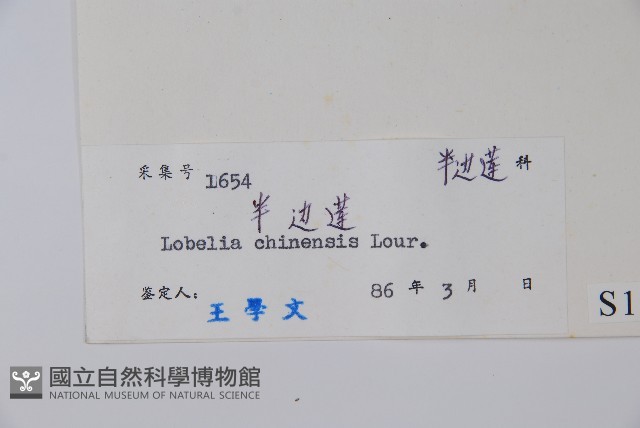 采集号 1654 半边莲 科
半边莲
Lobelia chinensis Lour.
鉴定人: 王學文 86 年 3 月 日
S1
國立自然科學博物館
NATIONAL MUSEUM OF NATURAL SCIENCE